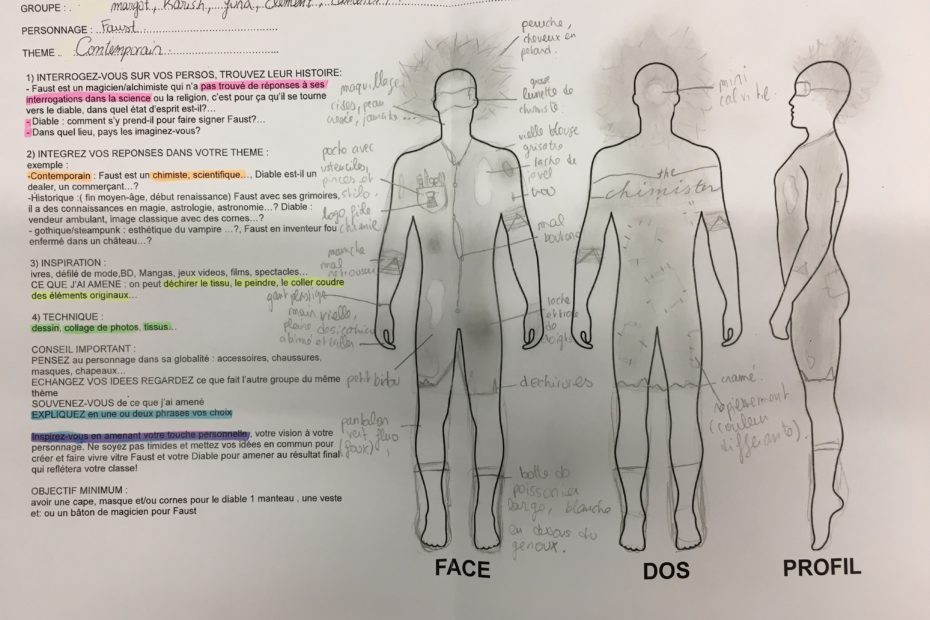 GROUPE : margot, Karish, Yuna, Clément,
PERSONNAGE : Faust
THEME .. Contemporain
1) INTERROGEZ-VOUS SUR VOS PERSOS, TROUVEZ LEUR HISTOIRE:
- Faust est un magicien/alchimiste qui n'a pas trouvé de réponses à ses
interrogations dans la science ou la religion, c'est pour ça qu'il se tourne
vers le diable, dans quel état d'esprit est-il?...
- Diable : comment s'y prend-il pour faire signer Faust?...
- Dans quel lieu, pays les imaginez-vous?
2) INTEGREZ VOS REPONSES DANS VOTRE THEME :
exemple :
-Contemporain : Faust est un chimiste, scientifique..., Diable est-il un
dealer, un commerçant...?
-Historique :( fin moyen-âge, début renaissance) Faust avec ses grimoires,
il a des connaissances en magie, astrologie, astronomie...? Diable :
vendeur ambulant, image classique avec des cornes...?
- gothique/steampunk : esthétique du vampire ...?, Faust en inventeur fou
enfermé dans un château...?
3) INSPIRATION :
ivres, défilé de mode,BD, Mangas, jeux videos, films, spectacles...
CE QUE J'AI AMENE : on peut déchirer le tissu, le peindre, le coller coudre
des éléments originaux...
4) TECHNIQUE :
dessin, collage de photos, tissus...
CONSEIL IMPORTANT :
PENSEZ au personnage dans sa globalité : accessoires, chaussures,
masques, chapeaux...
ECHANGEZ VOS IDEES REGARDEZ ce que fait l'autre groupe du même
thème
SOUVENEZ-VOUS de ce que j'ai amené
EXPLIQUEZ en une ou deux phrases vos choix
Inspirez-vous en amenant votre touche personnelle, votre vision à votre
personnage. Ne soyez pas timides et mettez vos idées en commun pour
créer et faire vivre vitre Faust et votre Diable pour amener au résultat final
qui reflétera votre classe!
OBJECTIF MINIMUM :
avoir une cape, masque et/ou cornes pour le diable 1 manteau , une veste
et: ou un bâton de magicien pour Faust
maquillage
rides, peau
poche avec
utenciles,
pinces et
stylo.
logo, fiole
chimie
manche
mal
gant plastique
main vielle,
abimé et
petit bidou
pantalon
vert fluo
(foux)
peruche,
cheveux en
petard.
grosse
lunette de
chimiste
vielle blouse
grisatre
tache de
javel
trou
mal
boutonné
tache
de
doigts
dechirures
botte de
poissonier
large, blanche
en dessous du
genoux.
mini
calvitie
the
chimister
cramé.
rapiessement
(couleur
differante).
FACE
DOS
PROFIL